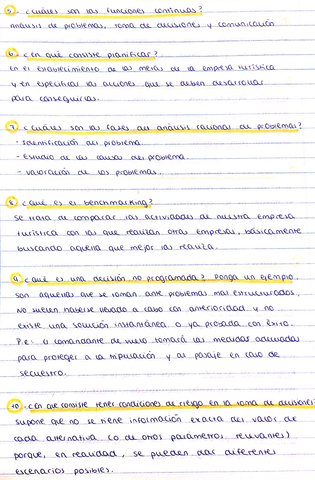 5.- ¿cuáles son las funciones continuas?
Análisis de problemas, toma de decisiones y comunicación
6.- ¿En qué consiste planificar?
En el establecimiento de las metas de la empresa turística
y en especificar las acciones que se deben desarrollar
para conseguirlas.
7.- ¿Cuáles son las fases del análisis racional de problemas?
- Identificación del problema.
- Estudio de las causas del problema.
- Valoración de los problemas.
8.- ¿Qué es el benchmarking?
Se trata de comparar las actividades de nuestra empresa
turística con las que realizan otras empresas, básicamente
buscando aquella que mejor las realiza.
9.- ¿Qué es una decisión no programada? Ponga un ejemplo.
Son aquellas que se toman ante problemas mal estructurados.
No suelen haberse llevado a cabo con anterioridad y no
existe una solución instantánea o ya probada con éxito.
P.e: el comandante de vuelo tomará las medidas adecuadas
para proteger a la tripulación y al pasaje en caso de
secuestro.
10.- ¿En que consiste tener condiciones de riesgo en la toma de decisiones?
Supone que no se tiene información exacta del valor de
cada alternativa (o de otros parámetros relevantes)
porque, en realidad, se pueden dar diferentes
escenarios posibles.